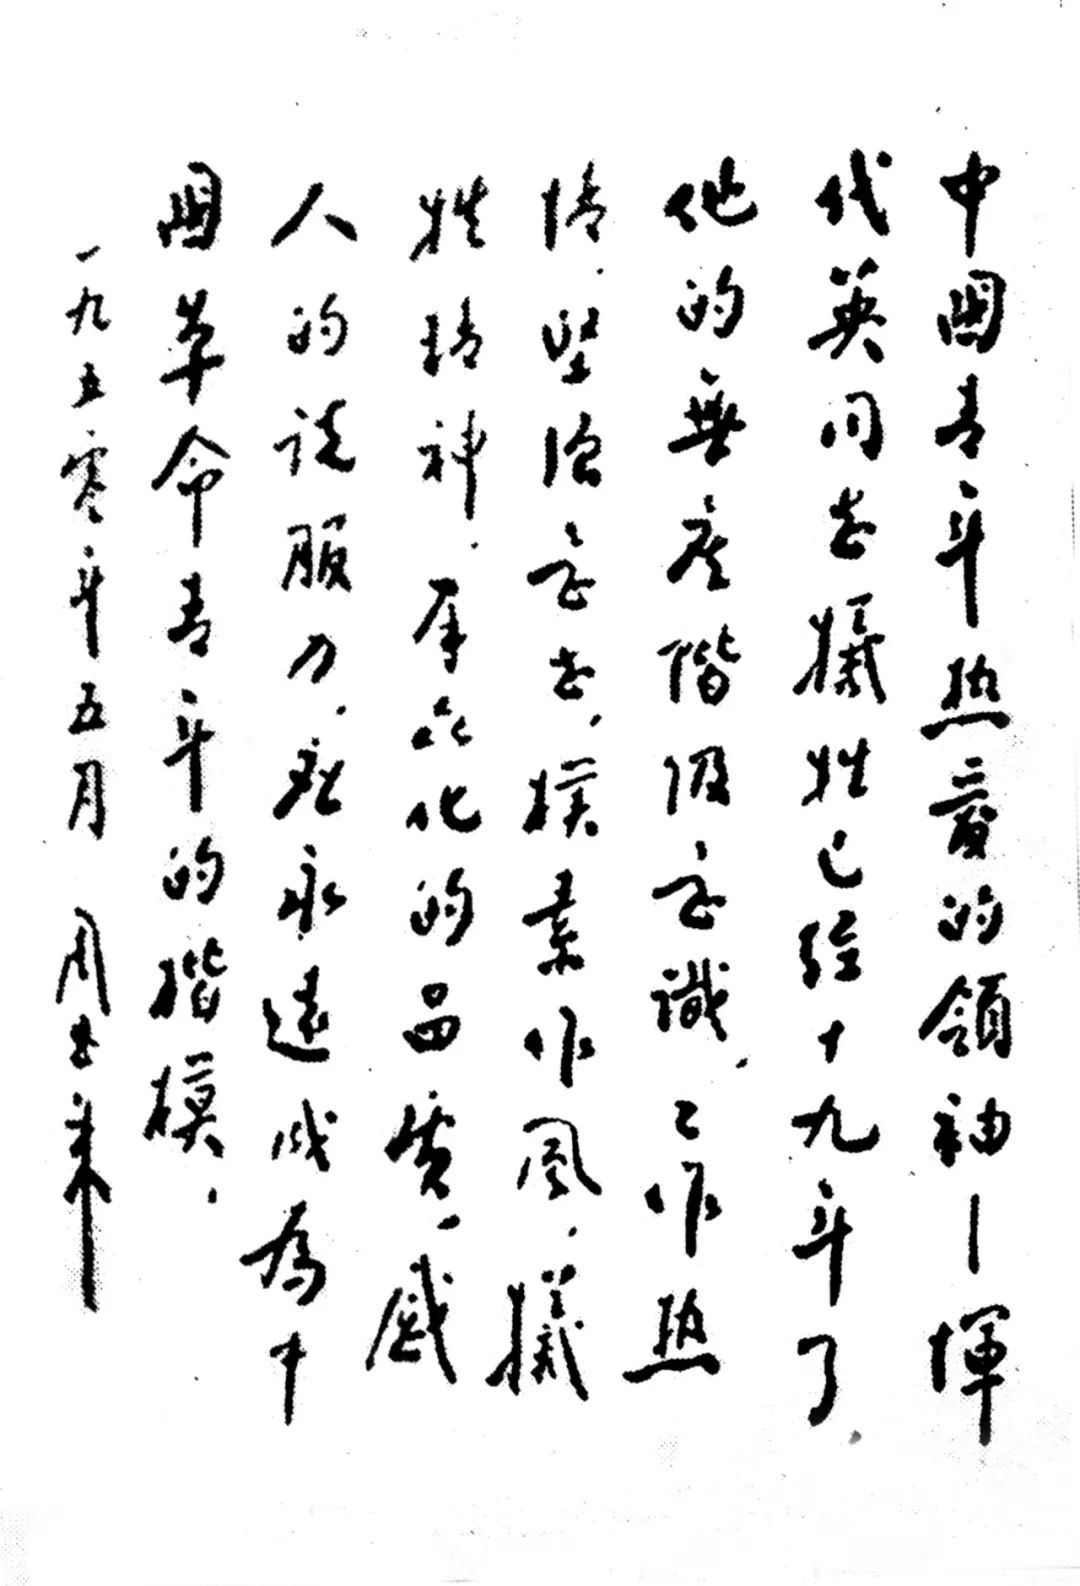 中國青年热愛的領袖—惲
代英同志犧牲已經十九年了，
他的無产階级意識，工作热
情，坚强意志，樸素作風，犧
牲精神，羣众化的品質，感
人的说服力，應永遠成為中
國革命青年的楷模。
一九五零年五月 周恩来